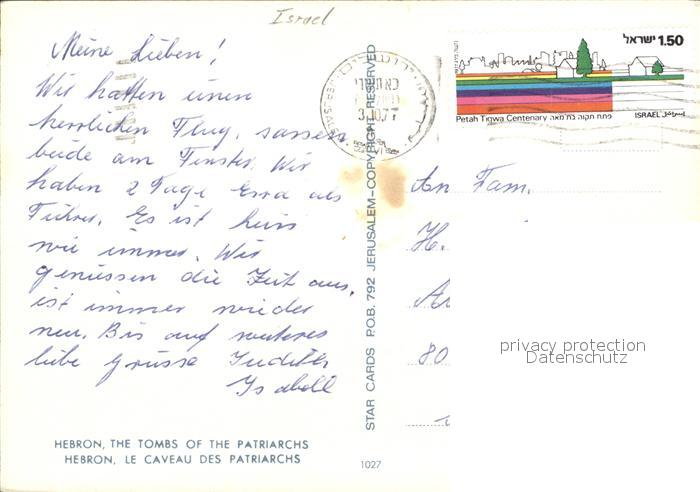 Israel
Meine Lieben!
Wir hatten einen
herrlichen Flug, sassen
beide am Fenster. Wir
haben 2 Tage Esra als
Führer. Es ist heiss
wie immer. Wir
geniessen die Zeit aus,
ist immer wieder
neu. Bis auf weiteres
liebe Grüsse Judith
Isabell
HEBRON, THE TOMBS OF THE PATRIARCHS
HEBRON, LE CAVEAU DES PATRIARCHS
STAR CARDS P.O.B. 792 JERUSALEM—COPYRIGHT RESERVED
1027
ישראל 1.50
Petah Tiqwa Centenary פתח תקוה בת מאה
ISRAEL اسرائيل
An Fam.
H.
80
privacy protection
Datenschutz